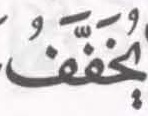 يُخَفَّفُ